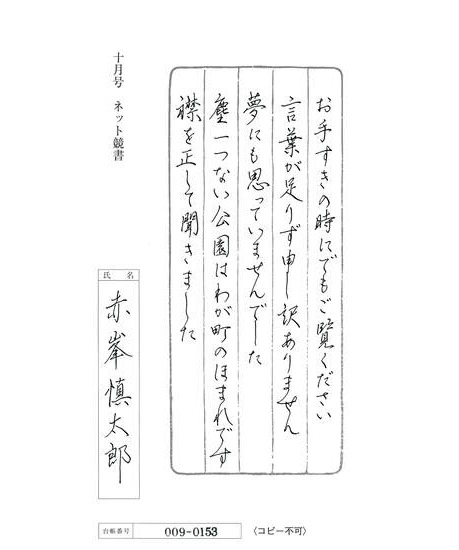 お手すきの時にでもご覧ください
言葉が足りず申し訳ありません
夢にも思っていませんでした
塵一つない公園はわが町のほまれです
襟を正して聞きました
十月号 ネット競書
氏名
赤峯慎太郎
台帳番号 009-0153 〈コピー不可〉